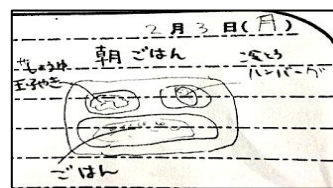 2月3日(月)
朝ごはん
玉子やき
ハンバーグ
ごはん